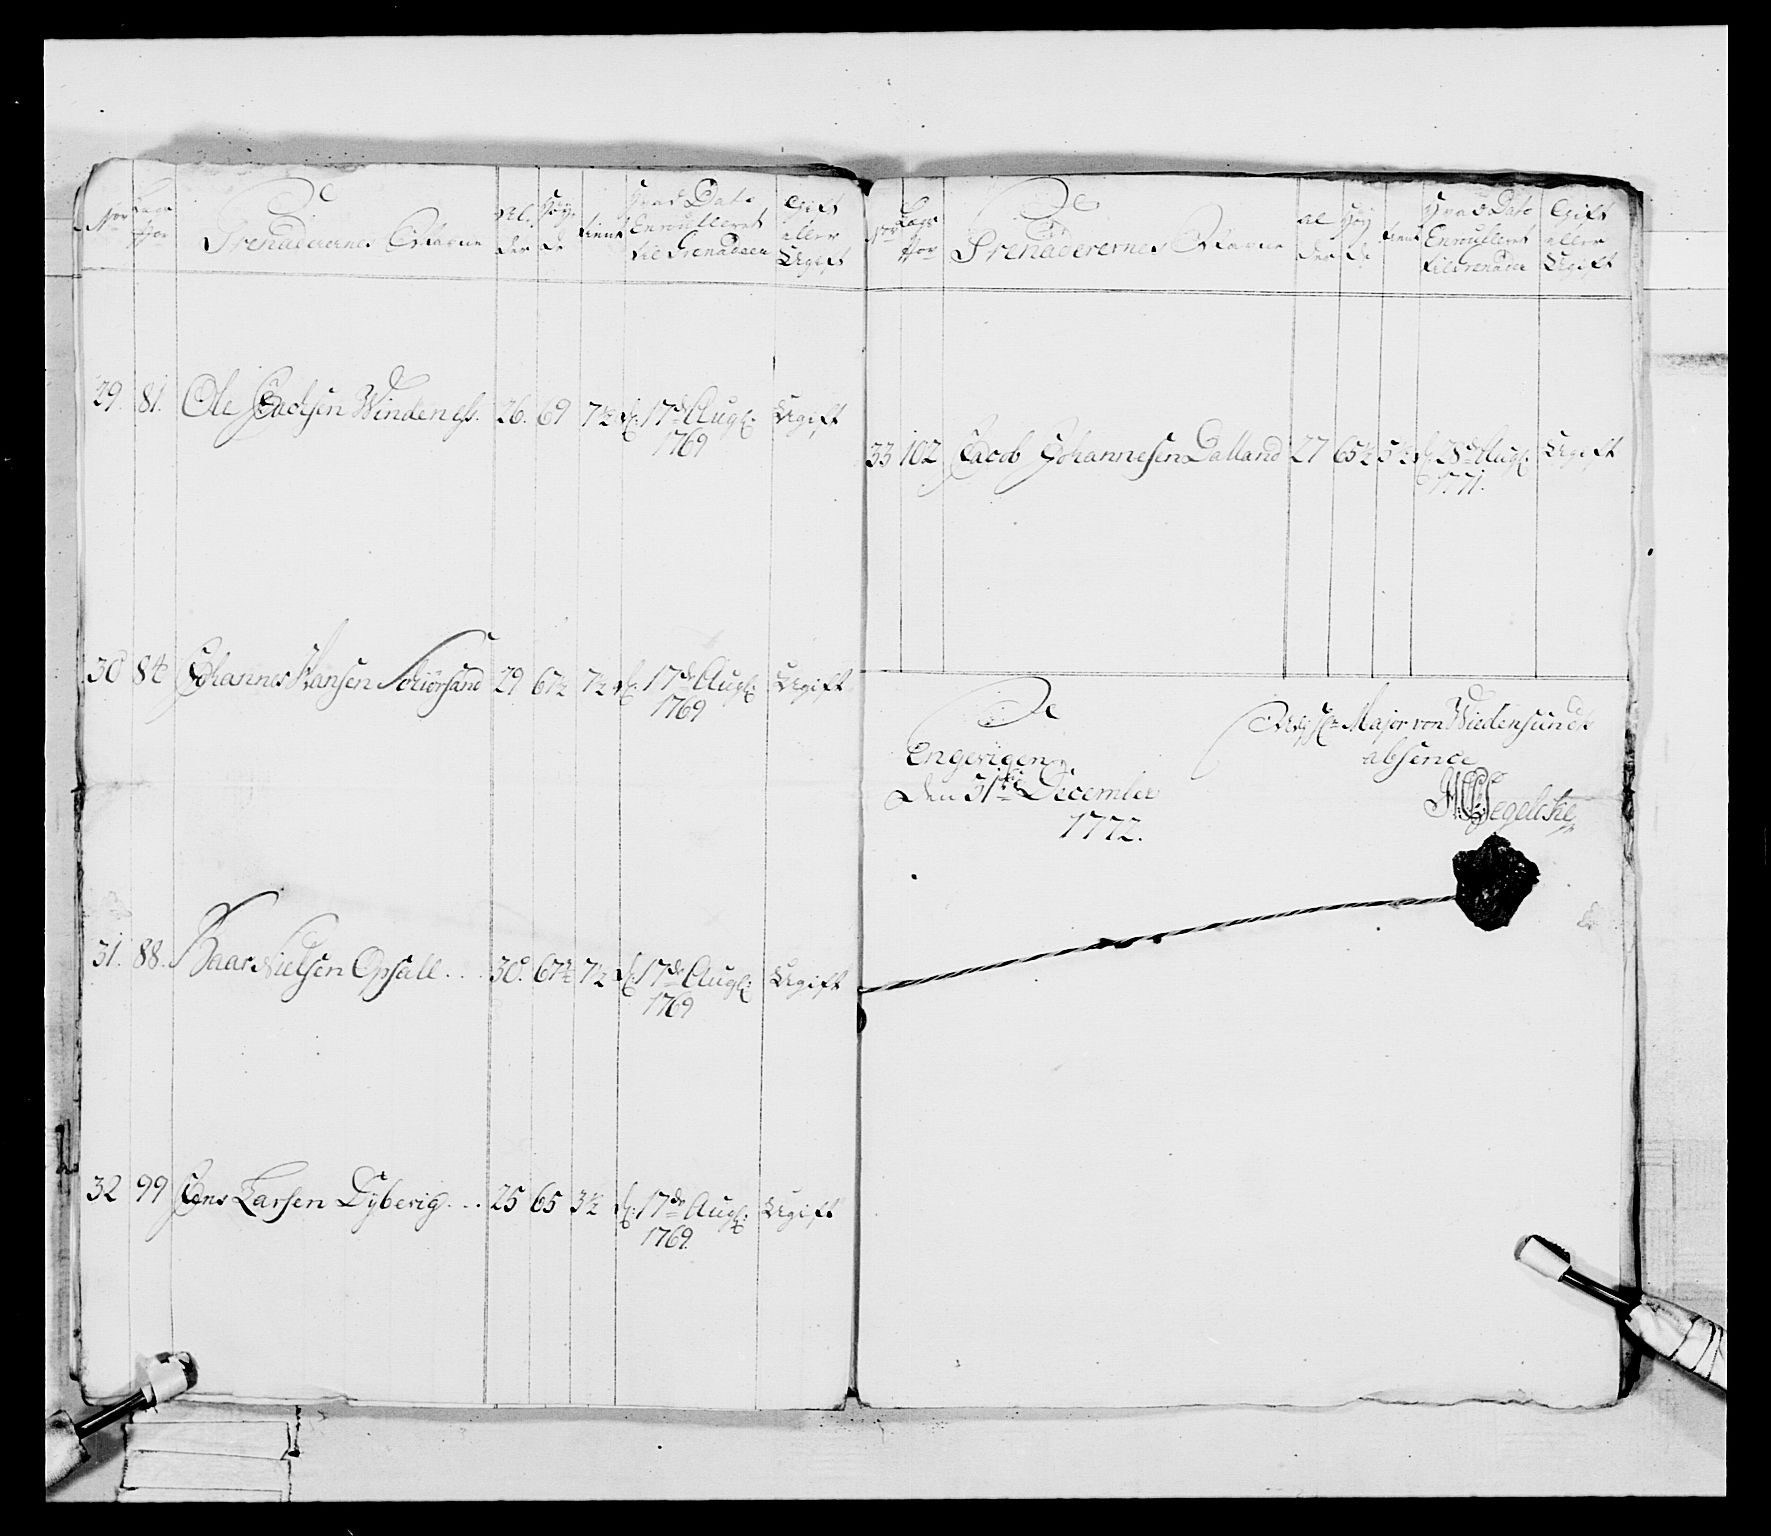 No Lægs No De Grenaderernes Nafne Al der Høy de tient Hvad Dato Enroulleret til Grenadeer Gift eller Ugift
29. 81. Ole Isachsen Windenes. 26. 69 7½ d. 17de Aug: Ugift
1769
30 84 Johannes Hansen Schiørsand 29 67½ 7½ d. 17de Aug: Ugift
1769
31. 88. Baar Nielsen Opsall . . . 30. 67½ 7½ d. 17de Aug: Ugift
1769
32 99 Jens Larsen Dyberig . . . 25 65 3½ d. 17de Aug: Ugift
1769.
No Lægs No De Grenaderernes Nafne Al der Høy de tient Hvad Dato Enroulleret til Grenadeer Gift eller Ugift
33 102 Jacob Johannesen Dalland 27 65½ 5½ d. 28de Aug: Ugift
1771.
De
Engevigen
den 31te December
1772.
Major von Wiedensundt
absence
Segelcke